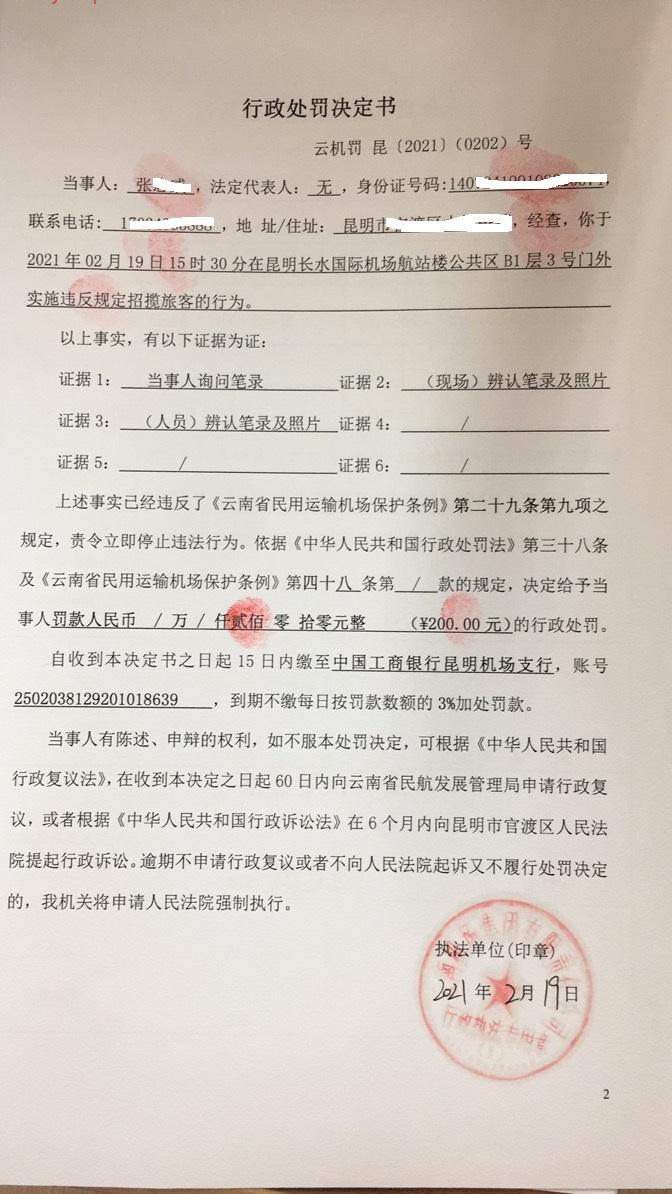 行政处罚决定书
云机罚 昆〔2021〕（0202）号
当事人：张 ，法定代表人：无，身份证号码:
联系电话: ，地 址/住址: 昆明市官渡区 ，经查，你于
2021年02月19日15时30分在昆明长水国际机场航站楼公共区B1层3号门外
实施违反规定招揽旅客的行为。
以上事实，有以下证据为证:
证据1: 当事人询问笔录 证据2: （现场）辨认笔录及照片
证据3: （人员）辨认笔录及照片 证据4: /
证据5: / 证据6: /
上述事实已经违反了《云南省民用运输机场保护条例》第二十九条第九项之
规定，责令立即停止违法行为。依据《中华人民共和国行政处罚法》第三十八条
及《云南省民用运输机场保护条例》第四十八 条第 / 款的规定，决定给予当
事人罚款人民币 / 万 / 仟贰佰 零 拾零元整 （¥200.00元）的行政处罚。
自收到本决定书之日起15日内缴至中国工商银行昆明机场支行，账号
2502038129201018639 ，到期不缴每日按罚款数额的3%加处罚款。
当事人有陈述、申辩的权利，如不服本处罚决定，可根据《中华人民共和国
行政复议法》，在收到本决定之日起60日内向云南省民航发展管理局申请行政复
议，或者根据《中华人民共和国行政诉讼法》在6个月内向昆明市官渡区人民法
院提起行政诉讼。逾期不申请行政复议或者不向人民法院起诉又不履行处罚决定
的，我机关将申请人民法院强制执行。
执法单位(印章)
2021年2月19日
行政执法专用章
2